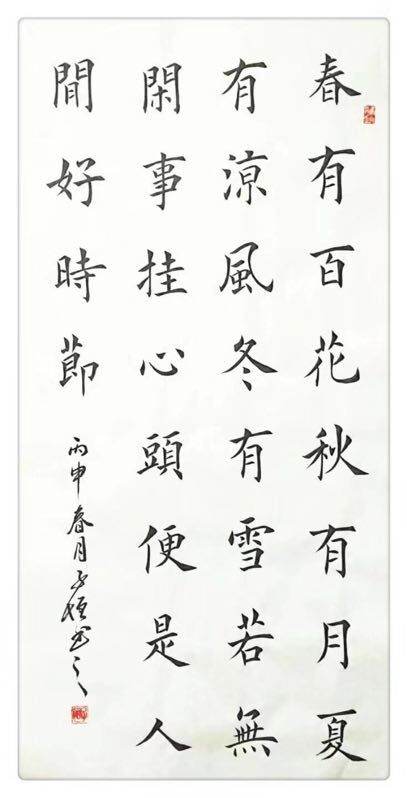 春有百花秋有月夏
有涼風冬有雪若無
閑事挂心頭便是人
間好時節
丙申春月